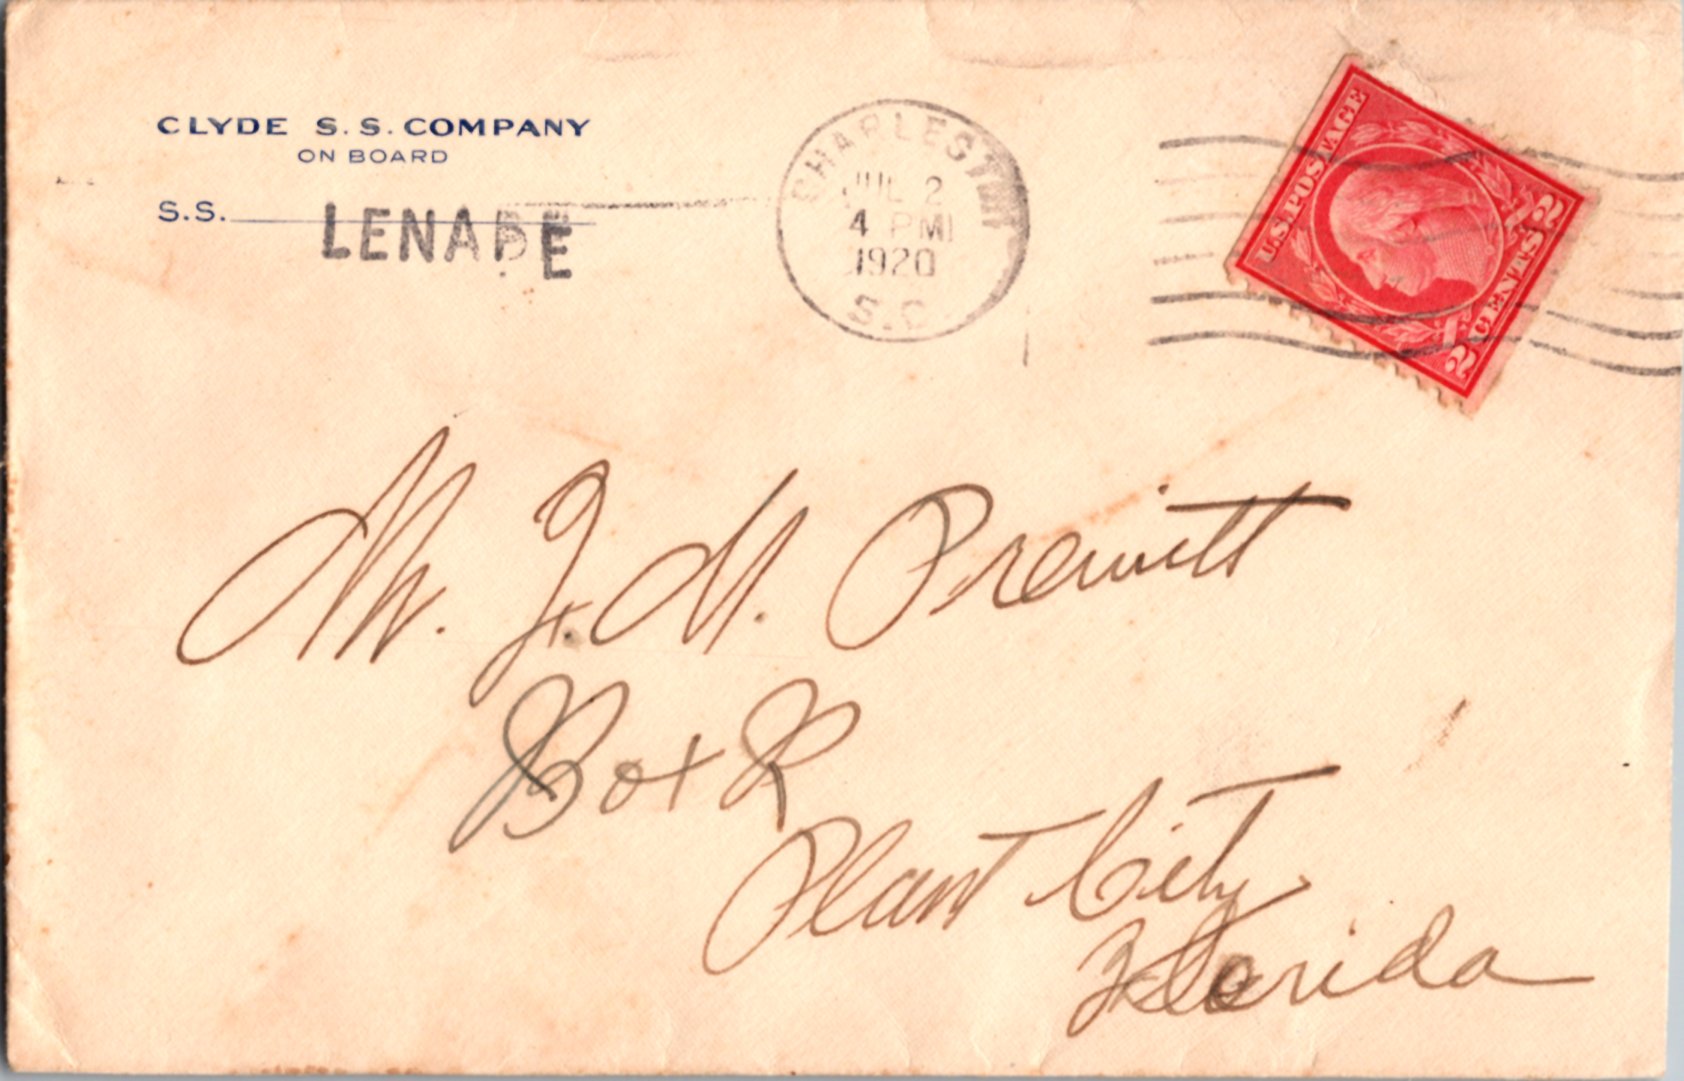 CLYDE S. S. COMPANY
ON BOARD
S.S. LENAPE
CHARLESTON
JUL 2
4 PM
1920
S.C.
U.S. POSTAGE
2 CENTS 2
Mr. F. M. Prewitt
Box R
Plant City
Florida